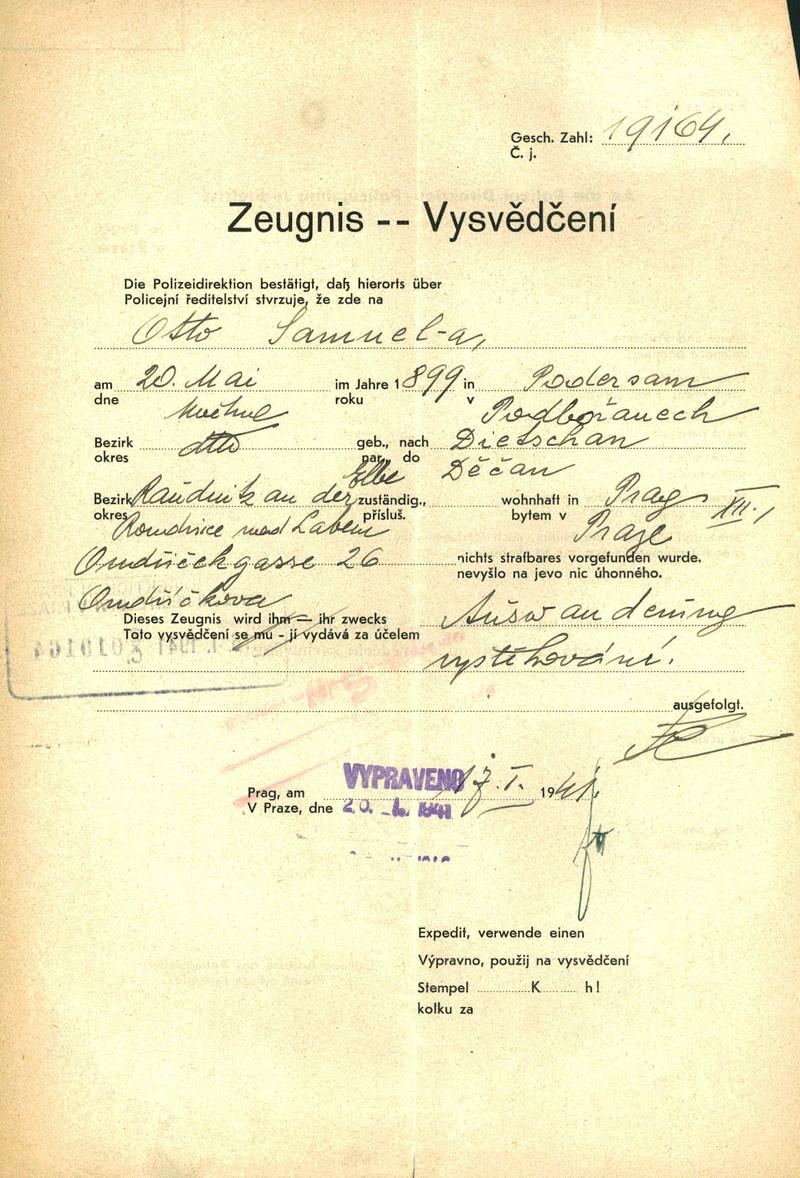 Gesch. Zahl: 19164.
Č. j.
Zeugnis -- Vysvědčení
Die Polizeidirektion bestätigt, daß hierorts über
Policejní ředitelství stvrzuje, že zde na
Otto Samuel-a,
am 20. Mai im Jahre 1899 in Podersam
dne roku v Podbořanech
Bezirk dtto geb., nach Dietschan
okres nar., do Děčan
Bezirk Raudnitz an der Elbe zuständig., wohnhaft in Prag XII.,
okres Roudnice nad Labem přísluš. bytem v Praze
Ondříčekgasse 26 nichts strafbares vorgefunden wurde.
nevyšlo na jevo nic úhonného.
Ondříčkova
Dieses Zeugnis wird ihm — ihr zwecks Auswanderung
Toto vysvědčení se mu - jí vydává za účelem
vystěhování.
ausgefolgt.
Prag, am 17. I. 1941.
V Praze, dne
VYPRAVENO
20. 1941
Expedit, verwende einen
Výpravno, použij na vysvědčení
Stempel K h!
kolku za